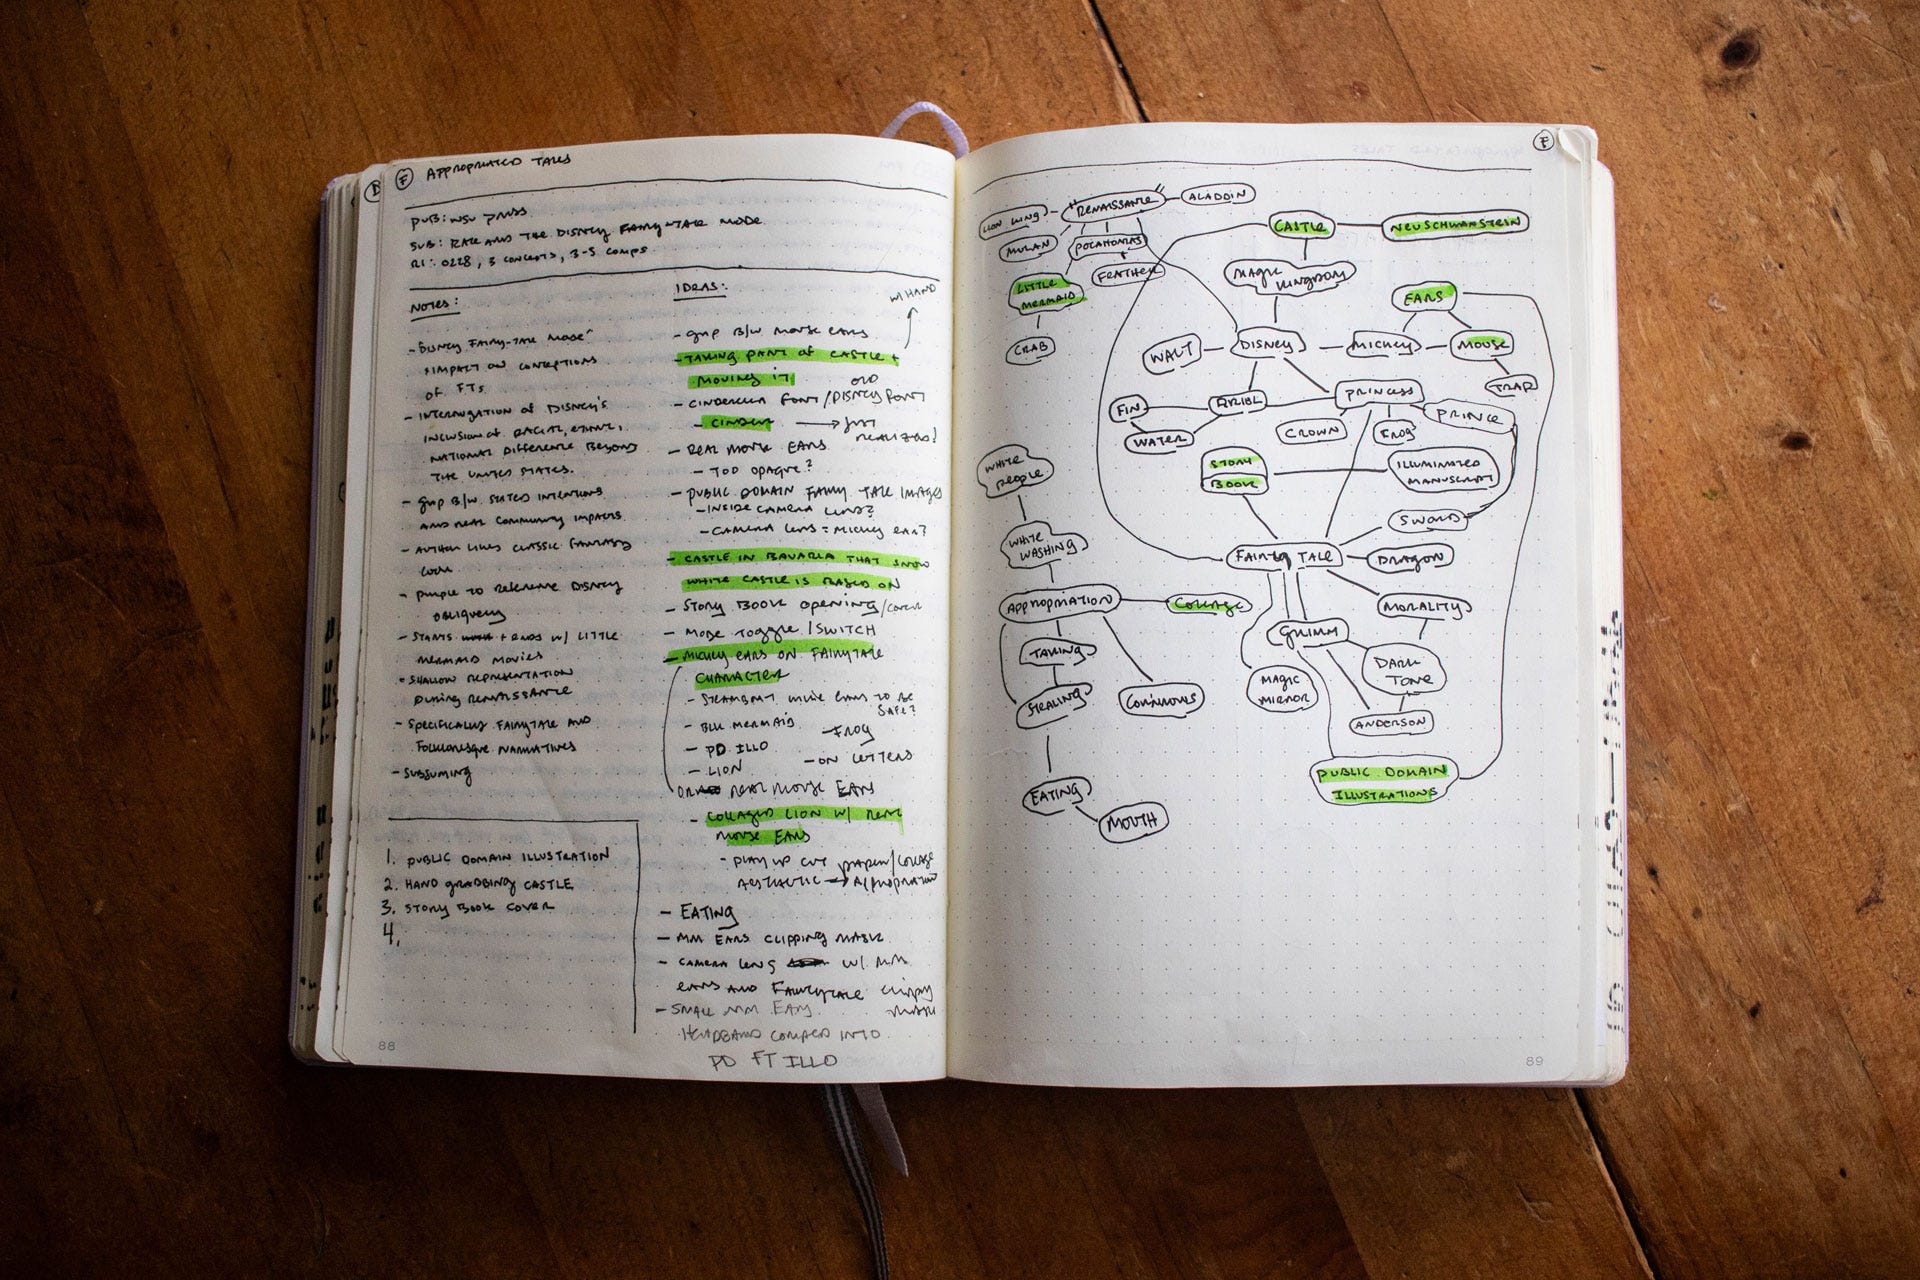 F APPROPRIATED TALES
PUB: WSU PRESS
SUB: RACE AND THE DISNEY FAIRY-TALE MODE
R1: 0228, 3 CONCEPTS, 3-5 COMPS
NOTES:
- "DISNEY FAIRY-TALE MODE"
IMPACT ON CONCEPTIONS
OF FTS
- INTERROGATION OF DISNEY'S
INCLUSION OF RACIAL, ETHNIC,
NATIONAL DIFFERENCE BEYOND
THE UNITED STATES.
- GAP B/W STATED INTENTIONS
AND REAL COMMUNITY IMPACTS
- AUTHOR LIKES CLASSIC FANTASY
LOOK
- PURPLE TO REFERENCE DISNEY
OBLIQUELY
- STARTS + ENDS W/ LITTLE
MERMAID MOVIES
SHALLOW REPRESENTATION
DURING RENAISSANCE
- SPECIFICALLY FAIRYTALE AND
FOLKLORESQUE NARRATIVES
- SUBSUMING
1. PUBLIC DOMAIN ILLUSTRATION
2. HAND GRABBING CASTLE
3. STORY BOOK COVER
4.
88
IDEAS:
W/ HAND
- GAP B/W MOUSE EARS
- TAKING PART OF CASTLE +
MOVING IT
- CINDERELLA FONT / OLD DISNEY FONT
- CINDER → JUST REALIZED!
- REAL MOUSE EARS
- TOO OPAQUE?
- PUBLIC DOMAIN FAIRY TALE IMAGES
- INSIDE CAMERA LENS?
- CAMERA LENS = MICKEY EAR?
- CASTLE IN BAVARIA THAT SNOW
WHITE CASTLE IS BASED ON
- STORY BOOK OPENING/COVER
- MODE TOGGLE / SWITCH
- MICKEY EARS ON FAIRYTALE
CHARACTER
- STEAMBOAT WILLIE EARS TO BE
SAFE?
- BLK MERMAID
- FROG
- PD ILLO
- ON LETTERS
- LION
OR REAL MOUSE EARS
- COLLAGED LION W/ REAL
MOUSE EARS
- PLAY UP CUT PAPER/COLLAGE
AESTHETIC → APPROPRIATION
- EATING
- MM EARS CLIPPING MASK
- CAMERA LENS W/ MM
EARS AND FAIRYTALE CLIPPING
MASK
- SMALL MM EARS
HEADBAND COLLAGED INTO
PD FT ILLO
F
LION KING
"RENAISSANCE"
ALADDIN
MULAN
POCAHONTAS
FEATHER
LITTLE
MERMAID
CRAB
CASTLE
NEUSCHWANSTEIN
MAGIC
KINGDOM
EARS
WALT
DISNEY
MICKEY
MOUSE
TRAP
FIN
ARIEL
PRINCESS
PRINCE
WATER
CROWN
FROG
STORY
BOOK
ILLUMINATED
MANUSCRIPT
SWORD
FAIRY TALE
DRAGON
MORALITY
GRIMM
DARK
TONE
MAGIC
MIRROR
ANDERSON
PUBLIC DOMAIN
ILLUSTRATIONS
WHITE
PEOPLE
WHITE
WASHING
APPROPRIATION
COLLAGE
TAKING
STEALING
EATING
MOUTH
89